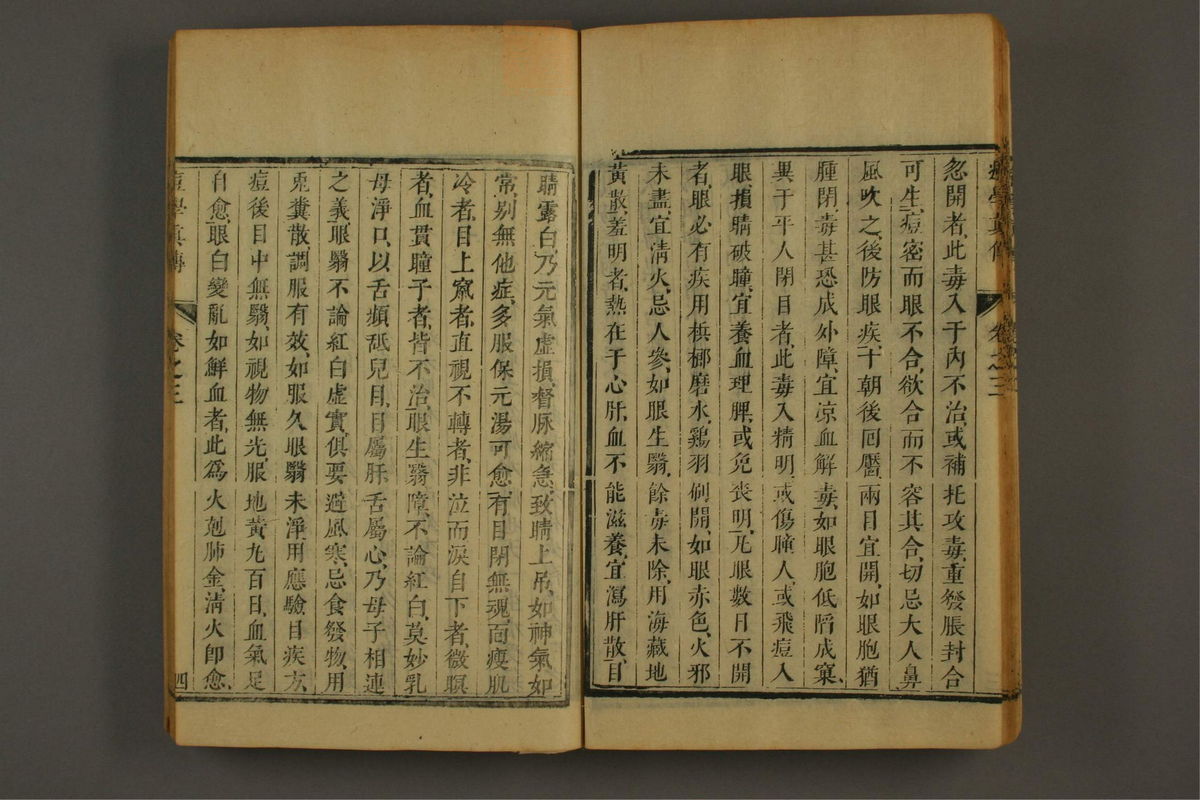 痘學真傳 卷之三
忽開者,此毒入于內不治,或補托攻毒,重發脹封合
可生,痘密而眼不合,欲合而不容其合,切忌大人鼻
風吹之,後防眼疾,十朝後囘靨,兩目宜開,如眼胞猶
腫閉毒甚恐成外障,宜凉血解毒,如眼胞低陷成窠,
異于平人閉目者,此毒入精明,或傷瞳人,或飛痘入
眼,損睛破瞳,宜養血理脾,或免喪明,凡眼數日不開
者,眼必有疾,用梹榔磨水,鷄羽刷開,如眼赤色,火邪
未盡,宜淸火,忌人參,如眼生翳,餘毒未除,用海藏地
黃散,羞明者,熱在于心肝,血不能滋養,宜瀉肝散,目
睛露白,乃元氣虛損,督脉縮急,致睛上吊,如神氣如
常,別無他症,多服保元湯可愈,有目閉無魂,面瘦肌
冷者,目上竄者,直視不轉者,非泣而淚自下者,微瞑
者,血貫瞳子者,皆不治,眼生翳障,不論紅白,莫妙乳
母淨口,以舌頻舐兒目,目屬肝,舌屬心,乃母子相連
之義,眼翳不論紅白虛實,俱要避風寒,忌食發物,用
兎糞散,調服有效,如眼久眼翳未淨,用應驗目疾方,
痘後目中無翳,如視物無光,服地黃丸百日,血氣足
自愈,眼白變亂如鮮血者,此爲火尅肺金,淸火卽愈,
痘學真傳 卷之三 四